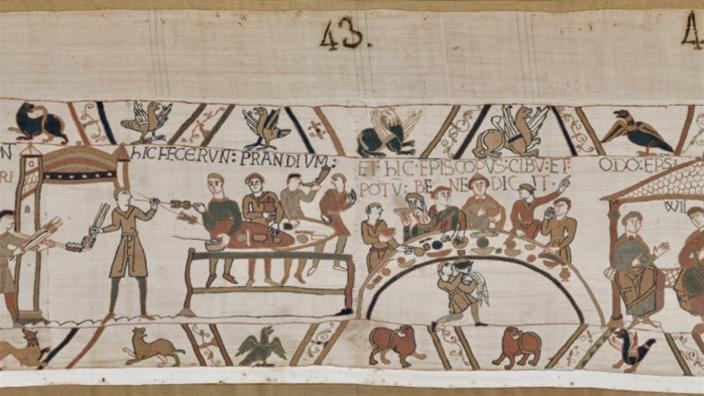 43.
4
N
RI
hIC FECERVN: PRANDIVM:
ET·hIC·EPISCOPVS:CIBV:ET·
POTV: BENEDICIT.
ODO:EPS:
WIL